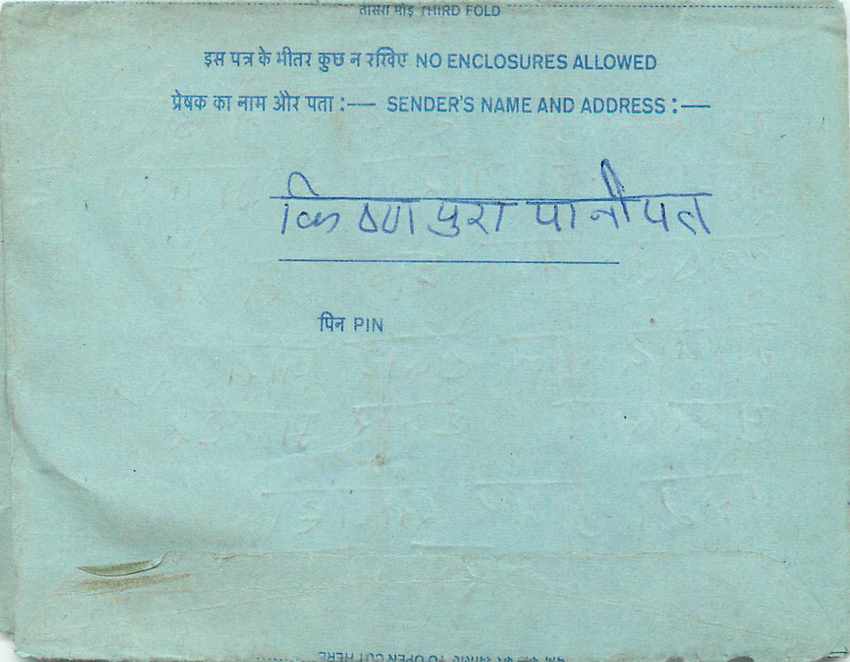 तीसरा मोड़ THIRD FOLD
इस पत्र के भीतर कुछ न रखिए NO ENCLOSURES ALLOWED
प्रेषक का नाम और पता :— SENDER'S NAME AND ADDRESS :—
किष्ण पुरा पानीपत
पिन PIN
TO OPEN CUT HERE